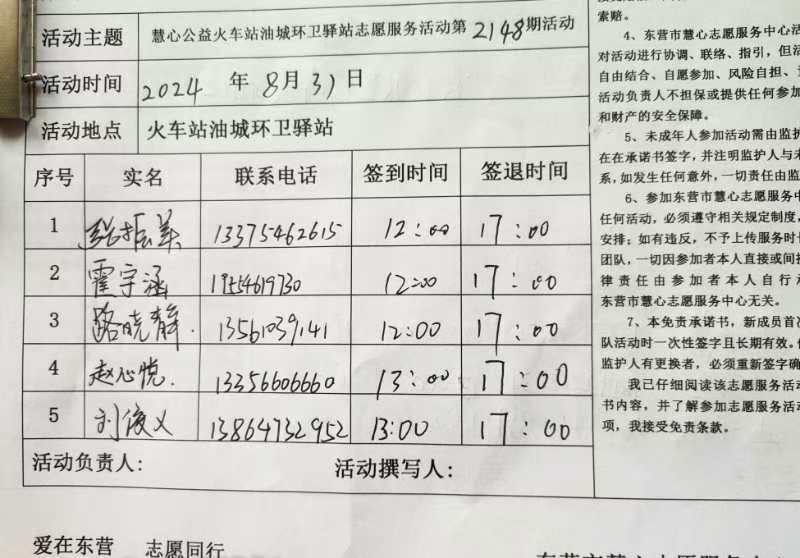 活动主题 慧心公益火车站油城环卫驿站志愿服务活动第2148期活动
活动时间 2024年8月31日
活动地点 火车站油城环卫驿站
序号 实名 联系电话 签到时间 签退时间
1 13375462615 12:00 17:00
2 霍宇涵 19554619730 12:00 17:00
3 路晓静. 13561039141 12:00 17:00
4 赵心悦. 13356606660 13:00 17:00
5 刘俊义 13864732952 13:00 17:00
活动负责人: 活动撰写人:
爱在东营 志愿同行
索赔。
4、东营市慧心志愿服务中心活
对活动进行协调、联络、指引，但活
自由结合、自愿参加、风险自担、
活动负责人不担保或提供任何参加
和财产的安全保障。
5、未成年人参加活动需由监护
在在承诺书签字，并注明监护人与未
系，如发生任何意外，一切责任由监
6、参加东营市慧心志愿服务中
任何活动，必须遵守相关规定制度，
安排；如有违反，不予上传服务时
团队，一切因参加者本人直接或间接
律责任由参加者本人自行
东营市慧心志愿服务中心无关。
7、本免责承诺书，新成员首次
队活动时一次性签字且长期有效。
监护人有更换者，必须重新签字确
我已仔细阅读该志愿服务活动
书内容，并了解参加志愿服务活动
项，我接受免责条款。